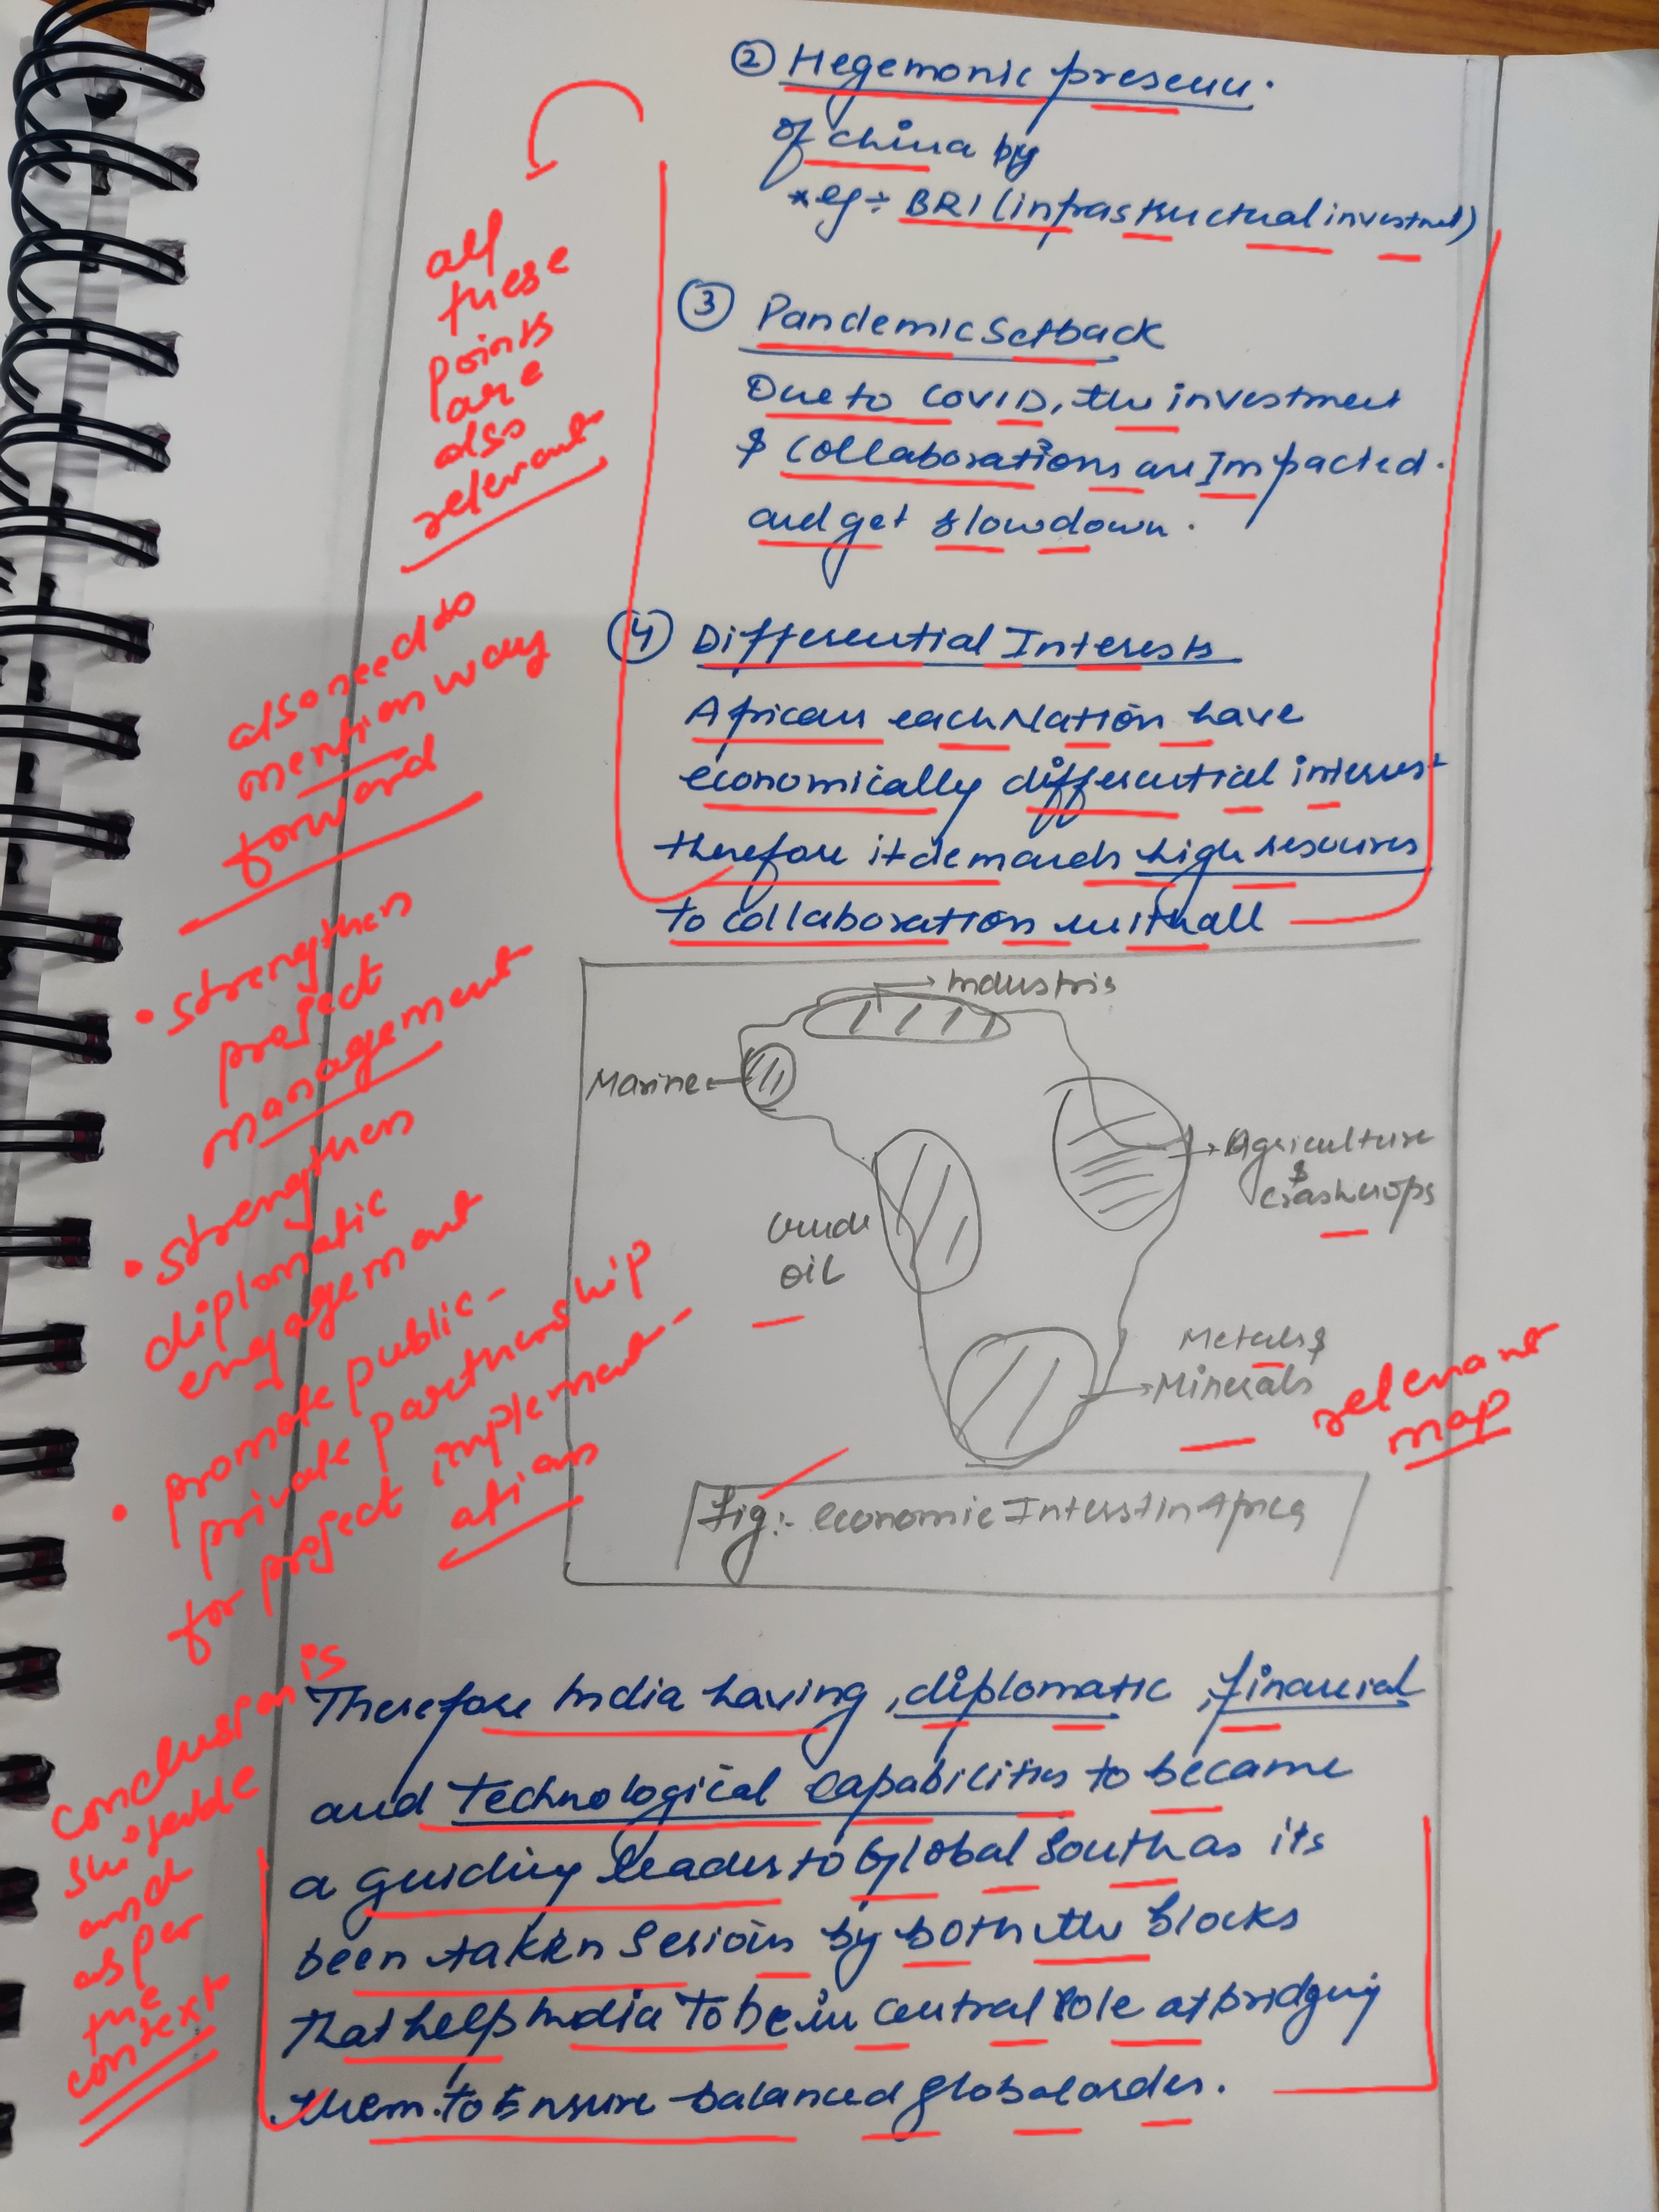 ② Hegemonic presence.
of China by
* eg ÷ BRI (infrastructual investmet)
③ Pandemic Setback
Due to COVID, the investment
& Collaborations are Impacted.
and get slowdown.
④ Differential Interests
African each Nation have
economically differential interest
therefore it demands high resources
to collaboration with all
all
these
points
are
also
relevant
also need to
mention way
forward
• strengthen
project
management
• strengthen
diplomatic
engagement
• promote public-
private partnership
for project implement-
ations
→ Industris
Marine ←
→ Agriculture
&
Crash crops
Crude
OIL
Metals &
→ Minerals
relevant
map
Fig:- economic Interst in Africa
Therefore India having, diplomatic, financial
and Technological Capabilities to became
a guiding leader to Global South as its
been takken Serious by both the blocks
that help India to be in central role at bridging
them. to Ensure balanced global order.
conclusion is
suitable
and
as per
the
context